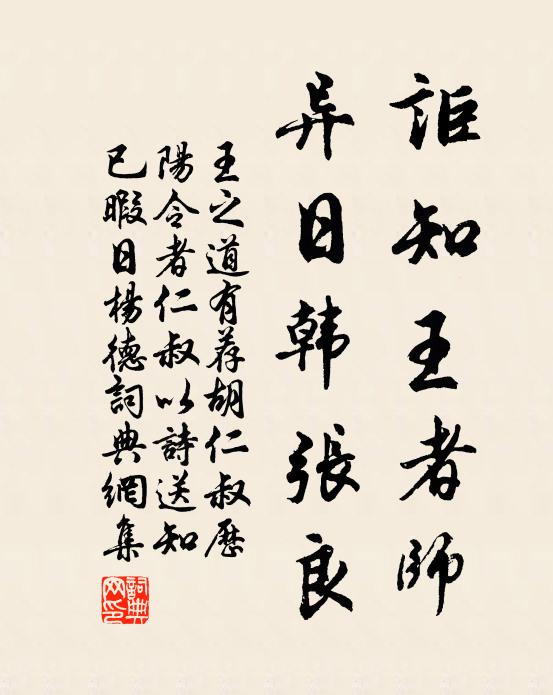 詎知王者師
异日韩張良
王之道有荐胡仁叔歷
陽令者仁叔以詩送知
已暇日楊德詞典網集
詞典網印